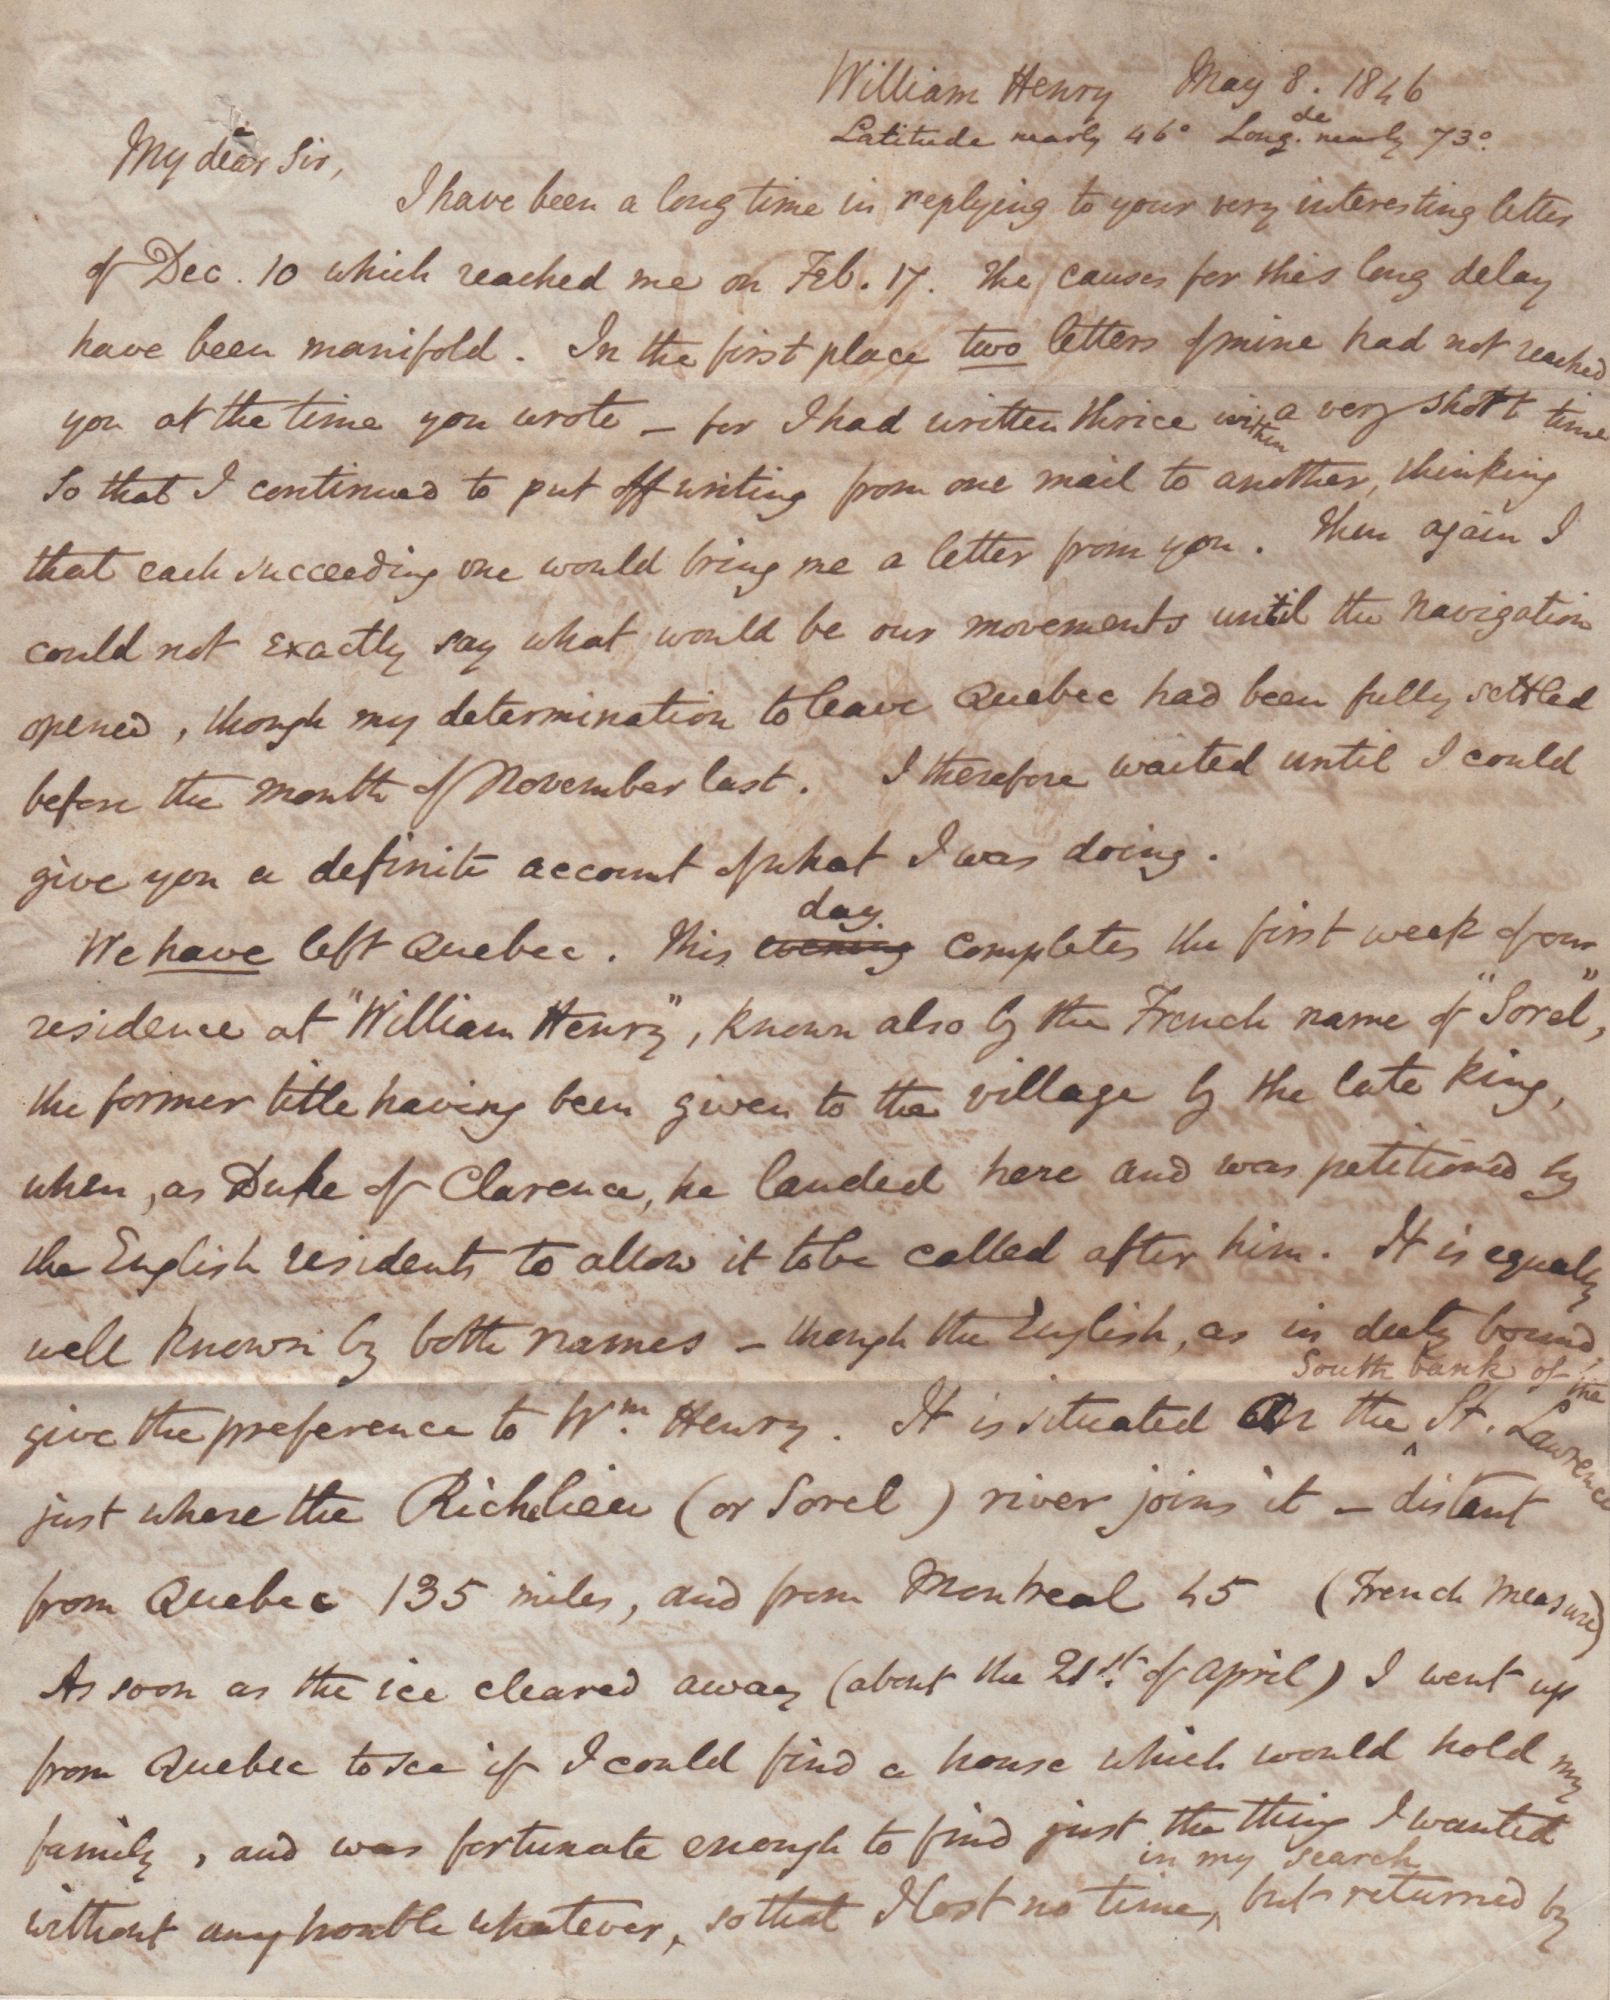 William Henry May 8. 1846
Latitude nearly 46° Long.de nearly 73°.
My dear Sir,
I have been a long time in replying to your very interesting letter
of Dec. 10 which reached me on Feb. 17. The causes for this long delay
have been manifold. In the first place two letters of mine had not reached
you at the time you wrote – for I had written thrice within a very short time
So that I continued to put off writing from one mail to another, thinking
that each succeeding one would bring me a letter from you. Then again I
could not exactly say what would be our movements until the navigation
opened, though my determination to leave Quebec had been fully settled
before the month of November last. I therefore waited until I could
give you a definite account of what I was doing.
day
We have left Quebec. This evening completes the first week of our
residence at "William Henry", known also by the French name of "Sorel",
the former title having been given to the village by the late King,
when, as Duke of Clarence, he landed here and was petitioned by
the English residents to allow it to be called after him. It is equally
well known by both names – though the English, as in duty bound,
give the preference to Wm. Henry. It is situated on the South bank of the St. Lawrence
just where the Richelieu (or Sorel) river joins it – distant
from Quebec 135 miles, and from Montreal 45 (French measure)
As soon as the ice cleared away (about the 21st. of April) I went up
from Quebec to see if I could find a house which would hold my
family, and was fortunate enough to find just the thing I wanted
without any trouble whatever, so that I lost no time in my search, but returned by